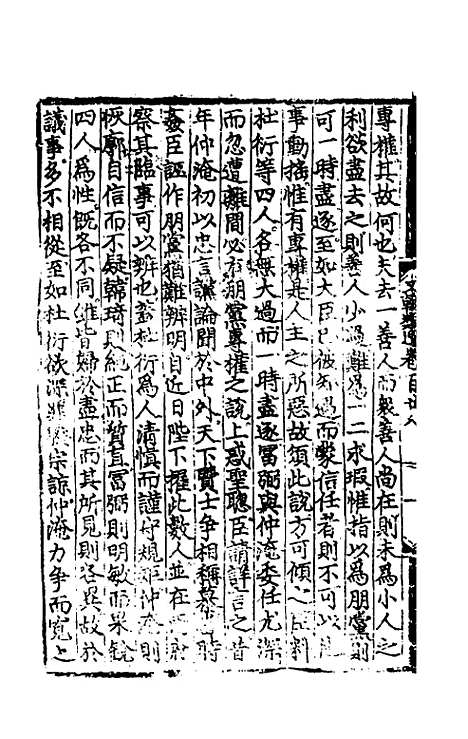 專權其故何也夫去一善人而衆善人尚在則未為小人之
利欲盡去之則善人少過難為一二求瑕惟指以為朋黨則
可一時盡逐至如大臣已被知遇而蒙信任者則不可以
事動揺惟有專權是人主之所惡故須此說方可傾之臣料
杜衍等四人各無大過而一時盡逐富弼與仲淹委任尤深
而忽遭離間必有朋黨專權之說上惑聖聦臣請詳言之昔
年仲淹初以忠言讜論聞於中外天下賢士争相稱慕時
姦臣誣作朋黨猶難辨明自近日陛下擢此數人並在
察其臨事可以辨也蓋杜衍為人清慎而謹守規矩仲淹則
恢廓自信而不疑韓琦則純正而質直富弼則明敏而果銳
四人為性既各不同雖皆歸於盡忠而其所見則各異故於
議事多不相從至如杜衍欲深罪滕宗諒仲淹力争而寬之
文翰類選卷百廿八